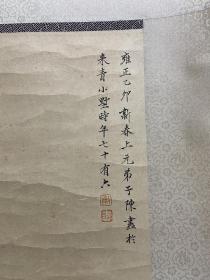 雍正乙卯新春上元弟子陳書於
来青小墅時年七十有六